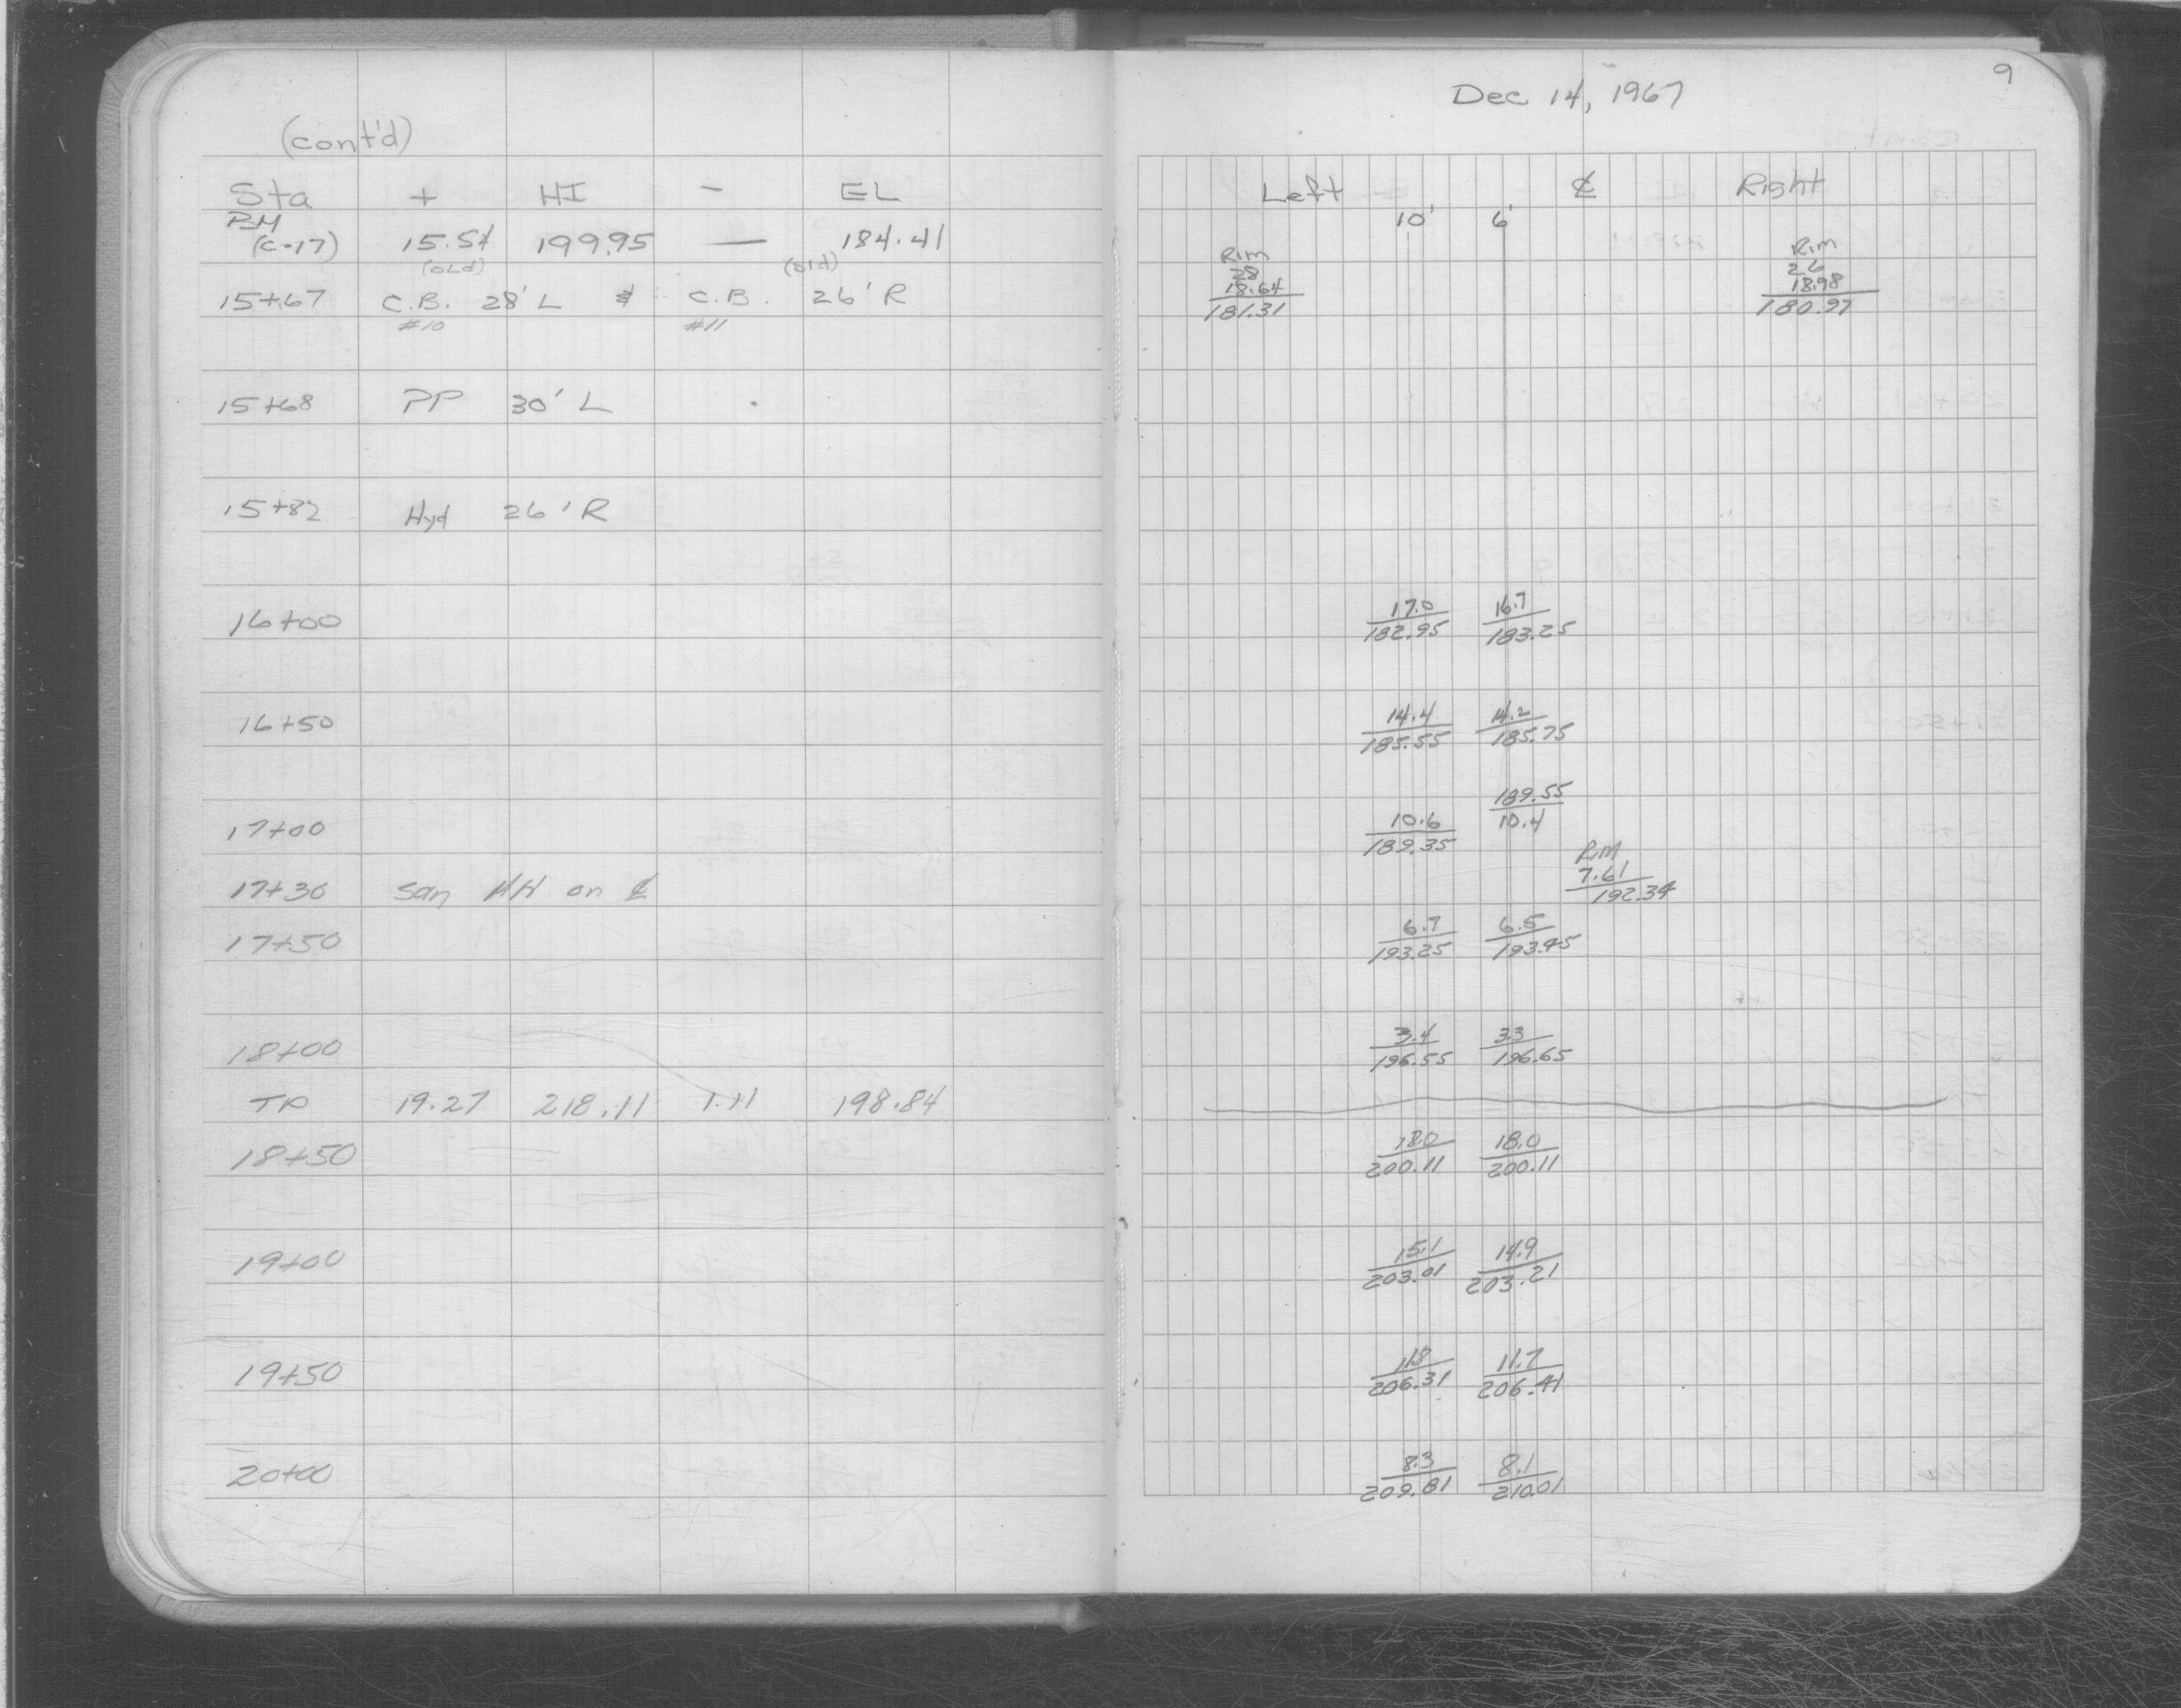 (cont'd)
Sta + HI - EL
BM
(C-17) 15.54 199.95 — 184.41
(old) (old)
15+67 C.B. 28' L & C.B. 26' R
#10 #11
15+68 PP 30' L
15+82 Hyd 26' R
16+00
16+50
17+00
17+30 San MH on ℄
17+50
18+00
TP 19.27 218.11 1.11 198.84
18+50
19+00
19+50
20+00
9
Dec 14, 1967
Left ℄ Right
10' 6'
Rim Rim
28 26
18.64 18.98
181.31 180.97
17.0 16.7
182.95 183.25
14.4 14.2
185.55 185.75
189.55
10.6 10.4
189.35
Rim
7.61
192.34
6.7 6.5
193.25 193.45
3.4 3.3
196.55 196.65
18.0 18.0
200.11 200.11
15.1 14.9
203.01 203.21
11.8 11.7
206.31 206.41
8.3 8.1
209.81 210.01